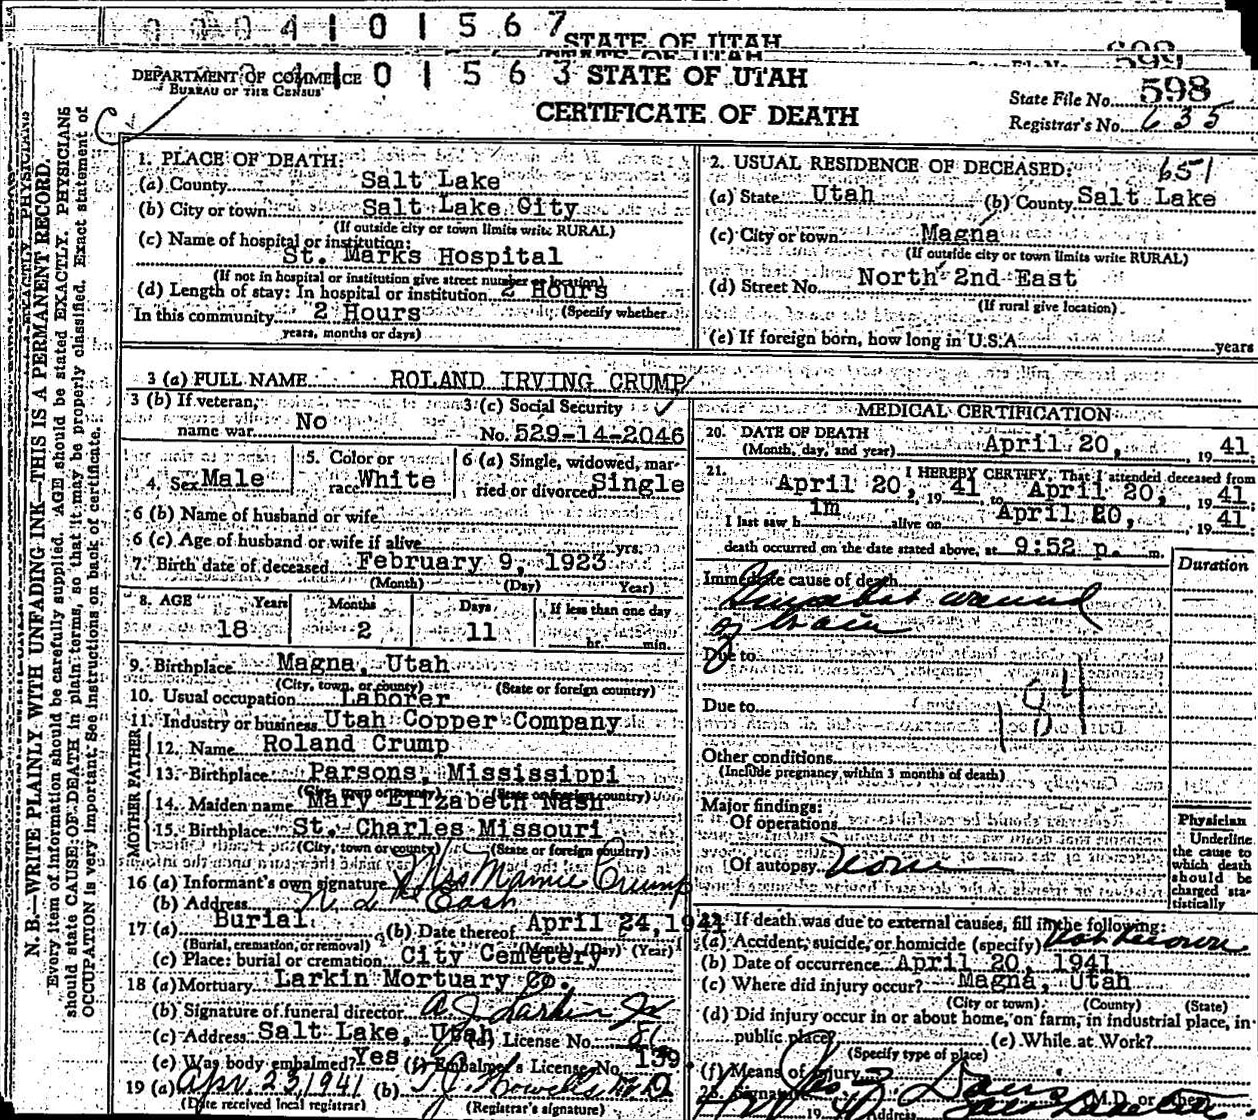 0 0 0 4 1 0 1 5 6 7
STATE OF UTAH
599
DEPARTMENT OF COMMERCE
BUREAU OF THE CENSUS
4 1 0 1 5 6 3
STATE OF UTAH
CERTIFICATE OF DEATH
State File No. 598
Registrar's No. 635
N. B.—WRITE PLAINLY, WITH UNFADING INK—THIS IS A PERMANENT RECORD.
Every item of information should be carefully supplied. AGE should be stated EXACTLY. PHYSICIANS
should state CAUSE OF DEATH in plain terms, so that it may be properly classified. Exact statement of
OCCUPATION is very important. See instructions on back of certificate.
1. PLACE OF DEATH:
(a) County Salt Lake
(b) City or town Salt Lake City
(If outside city or town limits write RURAL)
(c) Name of hospital or institution:
St. Marks Hospital
(If not in hospital or institution give street number or location)
(d) Length of stay: In hospital or institution 2 Hours
In this community 2 Hours (Specify whether
years, months or days)
2. USUAL RESIDENCE OF DECEASED: 651
(a) State Utah (b) County Salt Lake
(c) City or town Magna
(If outside city or town limits write RURAL)
(d) Street No. North 2nd East
(If rural give location)
(e) If foreign born, how long in U.S.A. years
3 (a) FULL NAME ROLAND IRVING CRUMP
3 (b) If veteran, name war No
3 (c) Social Security No. 529-14-2046
4. Sex Male
5. Color or race White
6 (a) Single, widowed, married or divorced Single
6 (b) Name of husband or wife
6 (c) Age of husband or wife if alive yrs.
7. Birth date of deceased February 9, 1923
(Month) (Day) Year)
8. AGE Years Months Days If less than one day
18 2 11 hr. min.
9. Birthplace Magna, Utah
(City, town, or county) (State or foreign country)
10. Usual occupation Laborer
11. Industry or business Utah Copper Company
FATHER
12. Name Roland Crump
13. Birthplace Parsons, Mississippi
(City, town or county) (State or foreign country)
MOTHER
14. Maiden name Mary Elizabeth Nash
15. Birthplace St. Charles Missouri
(City, town or county) (State or foreign country)
16 (a) Informant's own signature X Mrs Mamie Crump
(b) Address
17 (a) Burial (b) Date thereof April 24, 1941
(Burial, cremation, or removal) (Month) (Day) (Year)
(c) Place: burial or cremation City Cemetery
18 (a) Mortuary Larkin Mortuary Co.
(b) Signature of funeral director A. J. Larkin Jr
(c) Address Salt Lake, Utah (d) License No.
(e) Was body embalmed? Yes (f) Embalmer's License No. 139
19 (a) Apr. 23, 1941 (b)
(Date received local registrar) (Registrar's signature)
MEDICAL CERTIFICATION
20. DATE OF DEATH April 20, 19 41
(Month, day, and year)
21. I HEREBY CERTIFY, That I attended deceased from
April 20, 19 41 to April 20, 19 41
I last saw h im alive on April 20, 19 41
death occurred on the date stated above, at 9:52 p. m.
Duration
Immediate cause of death
Gunshot wound
of brain
Due to
Due to
184
Other conditions
(Include pregnancy within 3 months of death)
Major findings:
Of operations
Of autopsy None
Physician
Underline
the cause to
which death
should be
charged sta-
tistically
22. If death was due to external causes, fill in the following:
(a) Accident, suicide, or homicide (specify) Not known
(b) Date of occurrence April 20, 1941
(c) Where did injury occur? Magna, Utah
(City or town) (County) (State)
(d) Did injury occur in or about home, on farm, in industrial place, in
public place? (e) While at Work?
(Specify type of place)
(f) Means of injury
Signature M.D. or other
19 Address